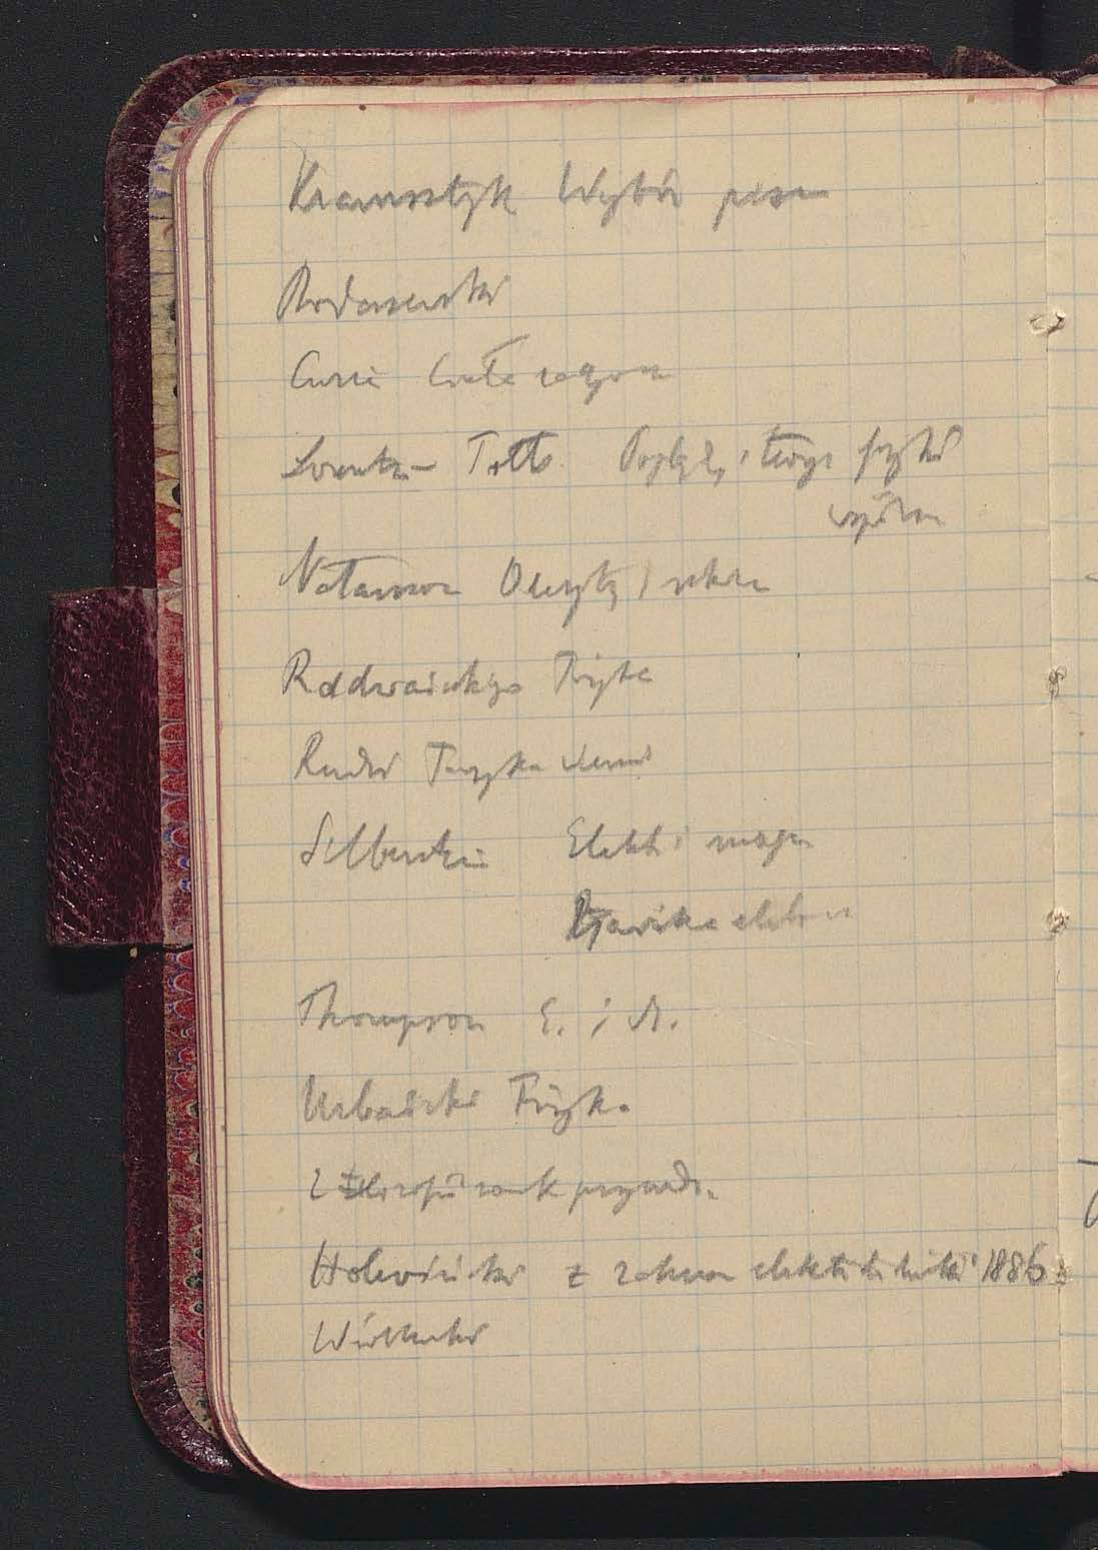 Kramsztyk Wybór pism
Curie Ciała
Lorentz Poglądy i teorye fizyki
współcz
Natanson Odczyty i szkice
Radwańskiego Fizyka
Rudzki Fizyka ziemi
Silberstein Elektr i magn
elektr
Thompson E. i M.
Urbański Fizyka
Z filozofii nauk przyrodn.
Hołowiński z zakresu elektrotechniki 1886
Witkowski